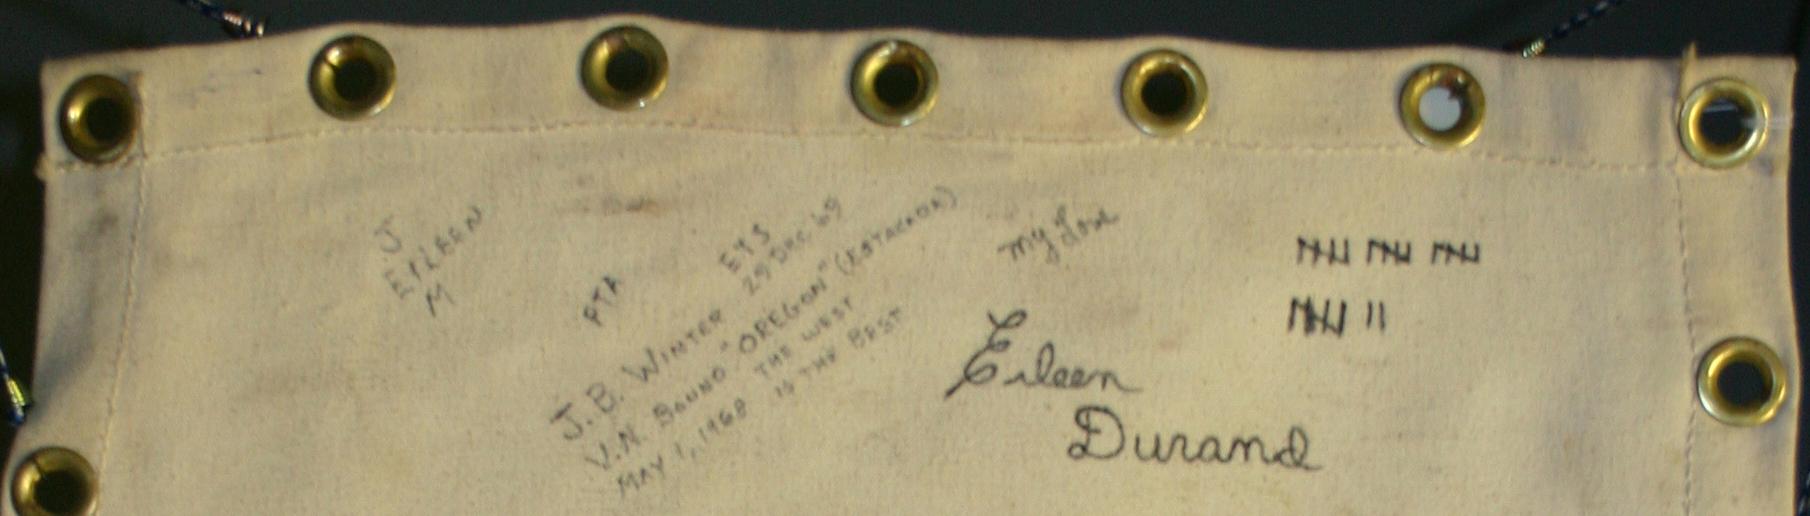 J
EILEEN
M
PTA
ETS
J.B. WINTER 29 DEC. 69
V.N. BOUND "OREGON" (ESTACADA)
MAY 1, 1968 THE WEST
IS THE BEST
My Love
Eileen
Durand